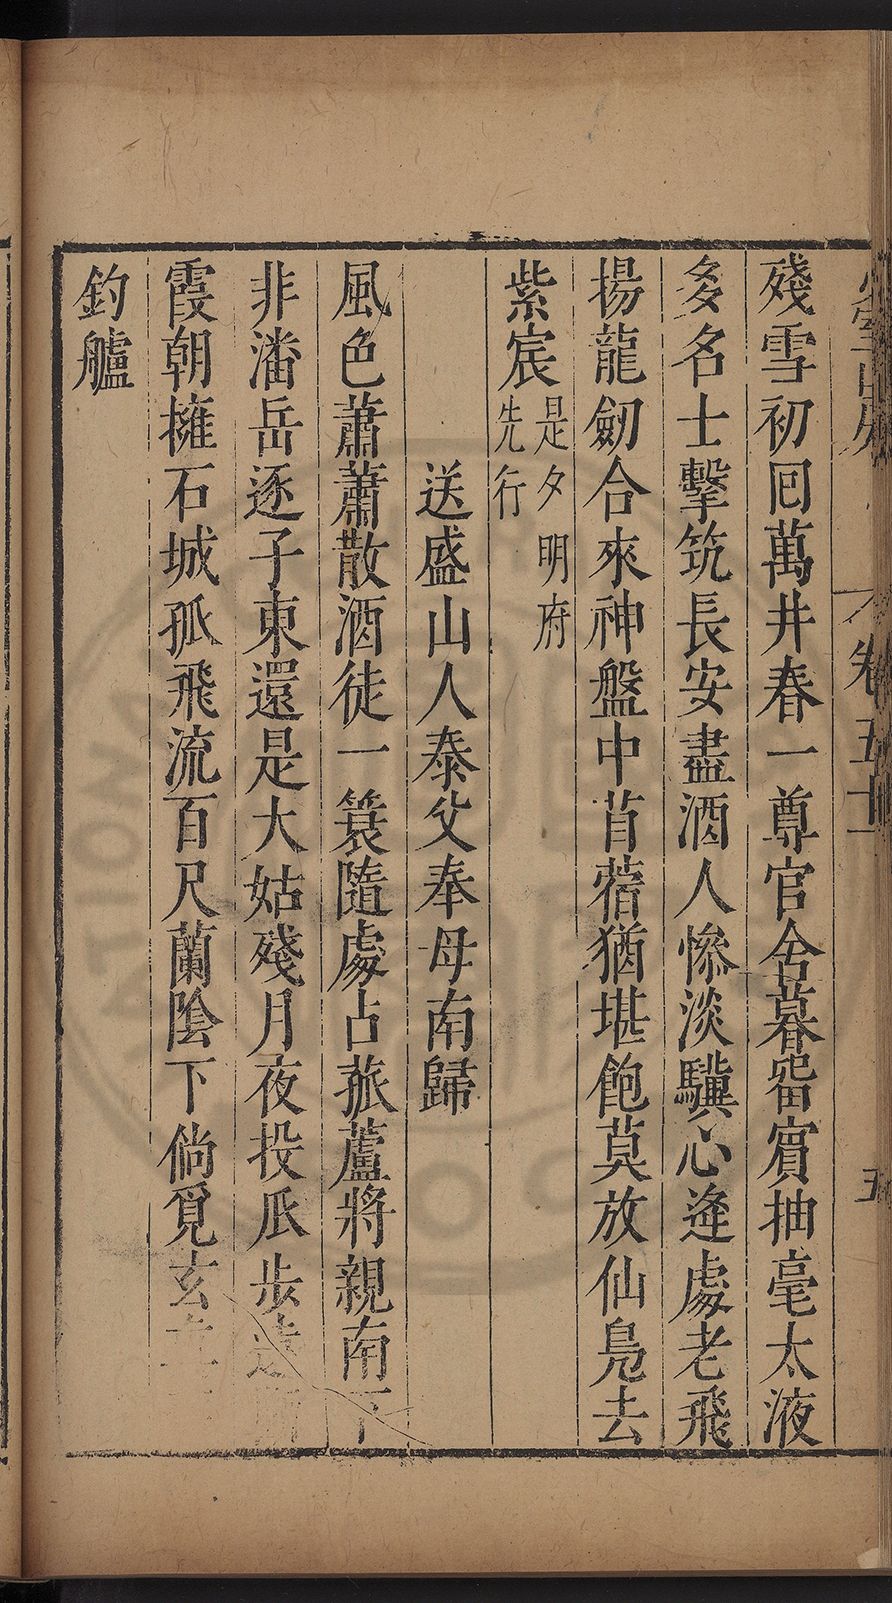 卷五十
五
殘雪初囘萬井春一尊官舍暮畱賓抽毫太液
多名士擊筑長安盡酒人慘淡驥心逢處老飛
揚龍劒合來神盤中苜蓿猶堪飽莫放仙鳧去
紫宸是夕明府先行
送盛山人泰父奉母南歸
風色蕭蕭散酒徒一簑隨處占菰蘆將親南下
非潘岳逐子東還是大姑殘月夜投瓜步遠
霞朝擁石城孤飛流百尺蘭陰下倘覓玄
釣艫